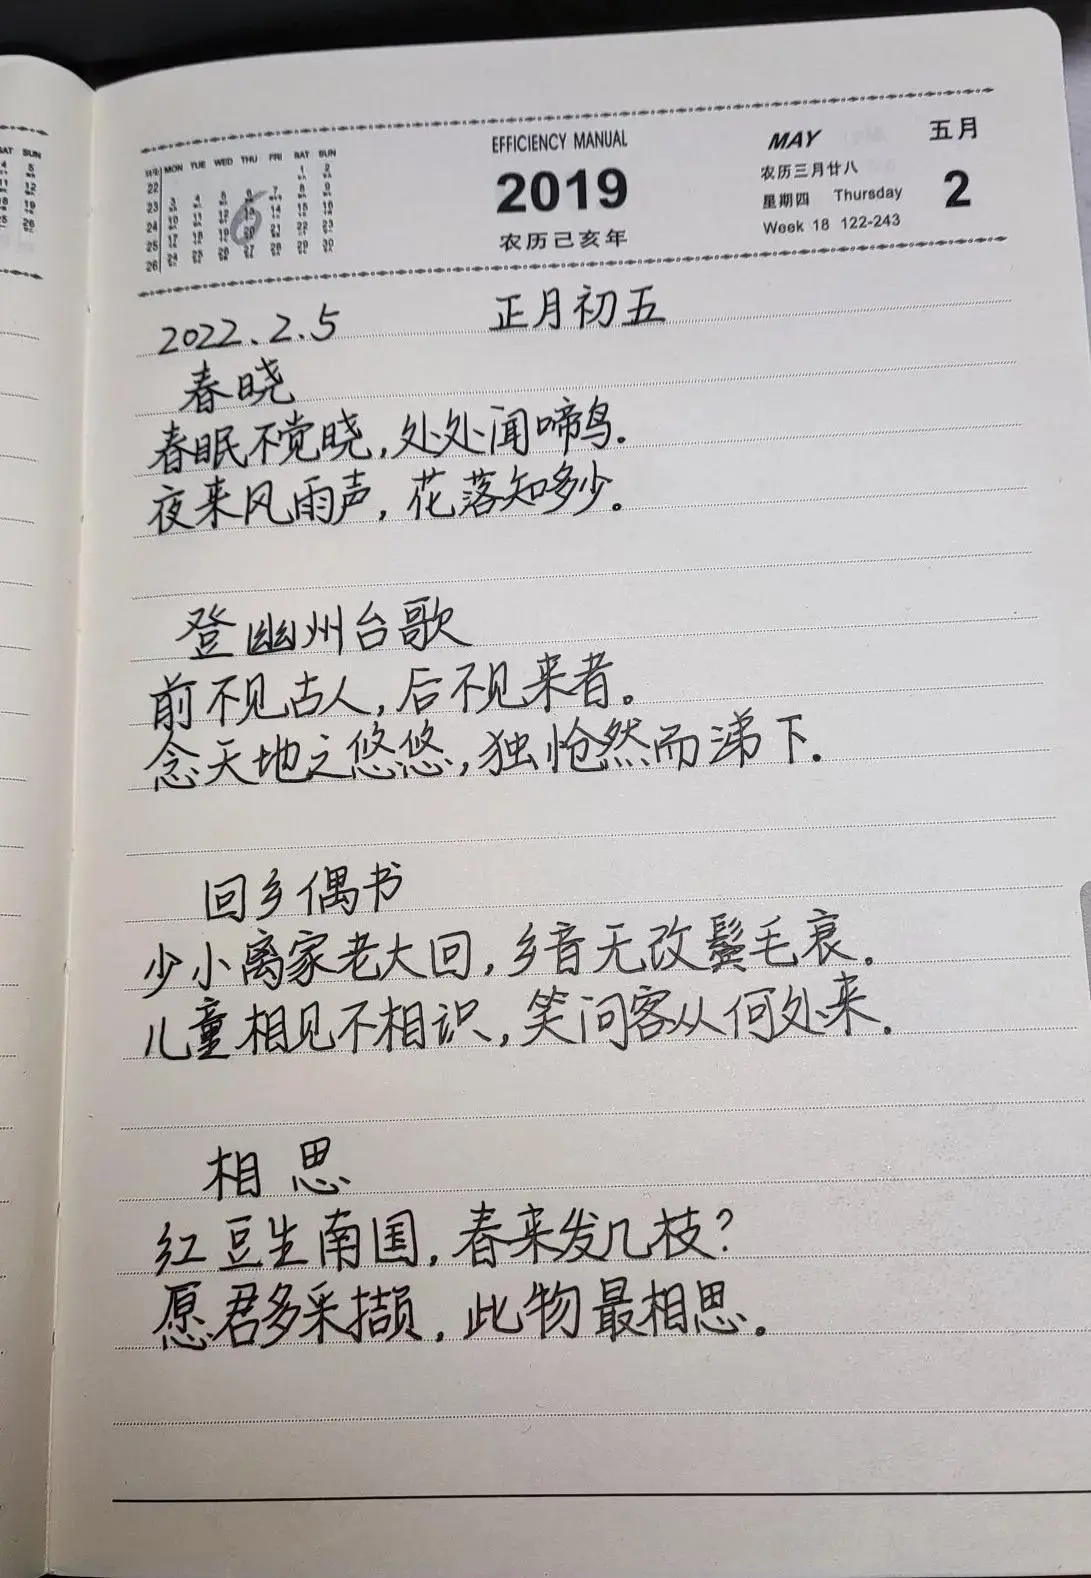 EFFICIENCY MANUAL
2019
农历己亥年
MAY 五月
农历三月廿八
星期四 Thursday 2
Week 18 122-243
MON TUE WED THU FRI SAT SUN
22 1 2
23 3 4 5 6 7 8 9
24 10 11 12 13 14 15 16
25 17 18 19 20 21 22 23
26 24 25 26 27 28 29 30
SAT SUN
4 5
11 12
18 19
25 26
2022.2.5 正月初五
春晓
春眠不觉晓,处处闻啼鸟.
夜来风雨声,花落知多少。
登幽州台歌
前不见古人,后不见来者。
念天地之悠悠,独怆然而涕下.
回乡偶书
少小离家老大回,乡音无改鬓毛衰.
儿童相见不相识,笑问客从何处来.
相思
红豆生南国,春来发几枝?
愿君多采撷,此物最相思。